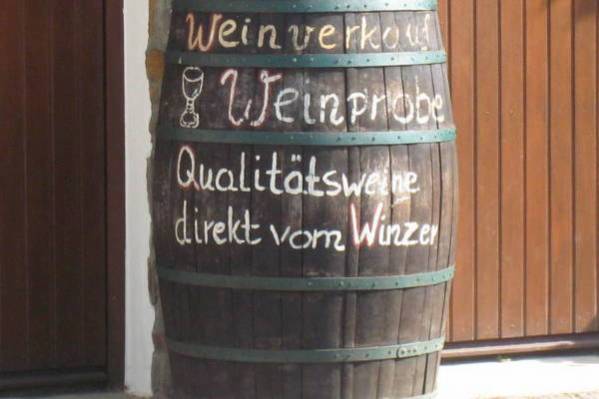 Weinverkauf
Weinprobe
Qualitätsweine
direkt vom Winzer